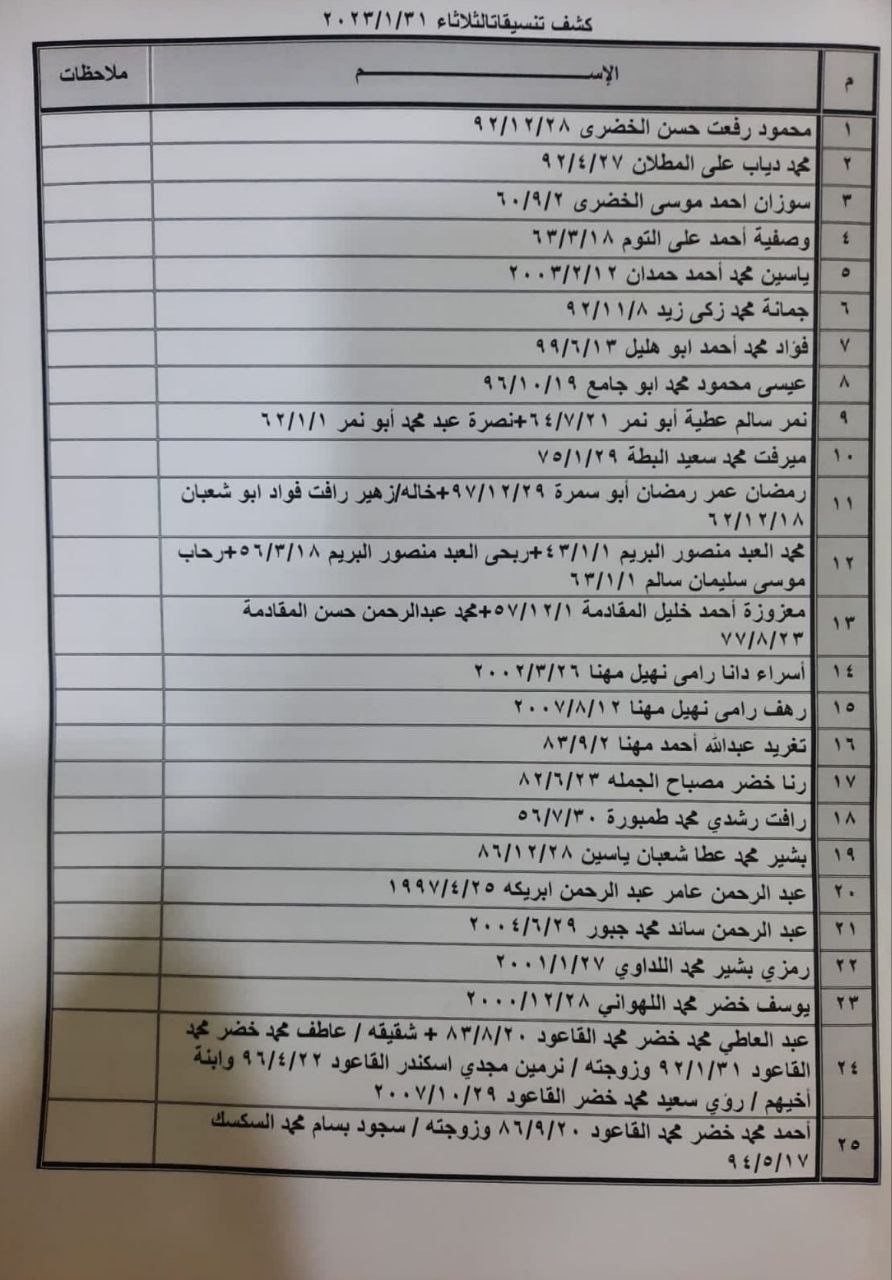 كشف تنسيقاتالثلاثاء ٢٠٢٣/١/٣١
م الإســـــــــــــــــم ملاحظات
١ محمود رفعت حسن الخضرى ٩٢/١٢/٢٨
٢ محمد دياب على المطلان ٩٢/٤/٢٧
٣ سوزان احمد موسى الخضرى ٦٠/٩/٢
٤ وصفية أحمد على التوم ٦٣/٣/١٨
٥ ياسين محمد أحمد حمدان ٢٠٠٣/٢/١٢
٦ جمانة محمد زكى زيد ٩٢/١١/٨
٧ فؤاد محمد أحمد ابو هليل ٩٩/٦/١٣
٨ عيسى محمود محمد ابو جامع ٩٦/١٠/١٩
٩ نمر سالم عطية أبو نمر ٦٤/٧/٢١+نصرة عبد محمد أبو نمر ٦٢/١/١
١٠ ميرفت محمد سعيد البطة ٧٥/١/٢٩
١١ رمضان عمر رمضان أبو سمرة ٩٧/١٢/٢٩+خاله/زهير رافت فواد ابو شعبان
٦٢/١٢/١٨
١٢ محمد العبد منصور البريم ٤٣/١/١+ربحى العبد منصور البريم ٥٦/٣/١٨+رحاب
موسى سليمان سالم ٦٣/١/١
١٣ معزوزة أحمد خليل المقادمة ٥٧/١٢/١+محمد عبدالرحمن حسن المقادمة
٧٧/٨/٢٣
١٤ أسراء دانا رامى نهيل مهنا ٢٠٠٢/٣/٢٦
١٥ رهف رامى نهيل مهنا ٢٠٠٧/٨/١٢
١٦ تغريد عبدالله أحمد مهنا ٨٣/٩/٢
١٧ رنا خضر مصباح الجمله ٨٢/٦/٢٣
١٨ رافت رشدي محمد طمبورة ٥٦/٧/٣٠
١٩ بشير محمد عطا شعبان ياسين ٨٦/١٢/٢٨
٢٠ عبد الرحمن عامر عبد الرحمن ابريكه ١٩٩٧/٤/٢٥
٢١ عبد الرحمن سائد محمد جبور ٢٠٠٤/٦/٢٩
٢٢ رمزي بشير محمد اللداوي ٢٠٠١/١/٢٧
٢٣ يوسف خضر محمد اللهواني ٢٠٠٠/١٢/٢٨
عبد العاطي محمد خضر محمد القاعود ٨٣/٨/٢٠ + شقيقه / عاطف محمد خضر محمد
٢٤ القاعود ٩٢/١/٣١ وزوجته / نرمين مجدي اسكندر القاعود ٩٦/٤/٢٢ وابنة
أخيهم / رؤي سعيد محمد خضر القاعود ٢٠٠٧/١٠/٢٩
٢٥ أحمد محمد خضر محمد القاعود ٨٦/٩/٢٠ وزوجته / سجود بسام محمد السكسك
٩٤/٥/١٧